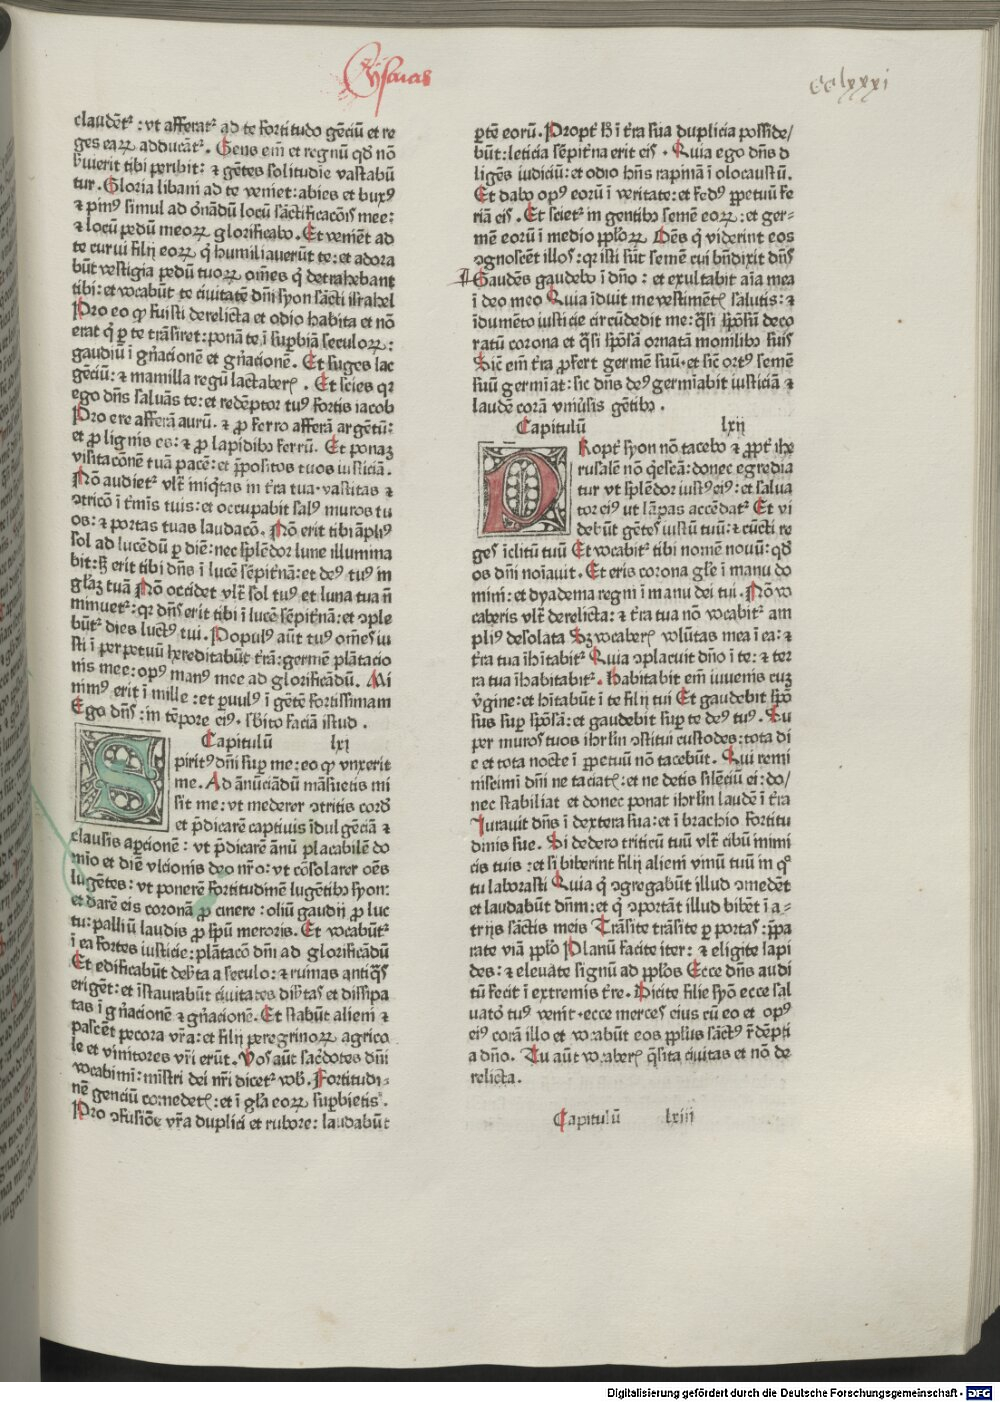 Ysaias
cclxxxi
claudēt᷑ : vt afferat᷑ ad te fortitudo gēciū et re
ges eaꝝ adducāt᷑ . Gens em̄ et regnū qđ nō
ẜuierit tibi peribit : ⁊ gētes solitudīe vastabū
tur . Gloria libani ad te veniet : abies et buxꝰ
⁊ pinꝰ simul ad ornādū locū sāctificacōīs mee :
⁊ locū pedū meoꝝ glorificabo . Et veniēt ad
te curui filij eoꝝ q̇ humiliauerūt te : et adora
būt vestigia pedū tuoꝝ om̄es q̇ detrahebant
tibi : et vocabūt te ciuitatē dn̄i syon sācti israhel
Pro eo ꝙ fuisti derelicta et odio habita et nō
erat q̇ ꝑ te trāsiret : ponā te ī supbiā seculoꝝ :
gaudiū ī gn̄acionē et gn̄acionē . Et suges lac
gēciū : ⁊ mamilla regū lactaberꝭ . Et scies qꝛ
ego dn̄s saluās te : et redēptor tuꝰ fortis iacob
Pro ere afferā aurū . ⁊ ꝓ ferro afferā argētū :
et ꝓ lignis es : ⁊ ꝓ lapidibꝰ ferrū . Et ponaꝫ
visitacōnē tuā pacē : et p̄positos tuos iusticiā .
Nō audiet᷑ vlt̄ iniq̇tas in t̄ra tua . vastitas ⁊
ꝯtricō ī t̄mīs tuis : et occupabit salꝰ muros tu
os : ⁊ portas tuas laudacō . Nō erit tibi āpliꝰ
sol ad lucēdū ꝑ diē : nec splēdor lune illumina
bit : sꝫ erit tibi dn̄s ī lucē sēpit̄nā : et deꝰ tuꝰ in
gl̄aꝫ tuā Nō occidet vlt̄ sol tuꝰ et luna tua n̄
minuet᷑ : qꝛ dn̄s erit tibi ī lucē sēpit̄nā : et ꝯple
būt᷑ dies luctꝰ tui . Populꝰ aūt tuꝰ om̄es iu
sti ī perpetuū hereditabūt t̄rā : germē plātacio
nis mee : opꝰ manꝰ mee ad glorificādū . Mi
nimꝰ erit ī mille : et ꝑuulꝰ ī gētē fortissimam
Ego dn̄s : in tēpore eiꝰ . sb̄ito faciā istud .
Capitulū lxi
Spiritꝰ dn̄i sup me : eo ꝙ vnxerit
me . Ad ānūciādū māsuetis mi
sit me : vt mederer ꝯtritis cord̄
et p̄dicarē captiuis īdulgēciā ⁊
clausis apcionē : vt p̄dicarē ānū placabilē do
mīo et diē vlcionis deo nr̄o : vt cōsolarer oēs
lugētes : vt ponerē fortitudinē lugētibꝰ syon :
et darē eis coronā ꝓ cinere : oliū gaudij ꝓ luc
tu : palliū laudis ꝓ sp̄u meroris . Et vocabūt᷑
ī ea fortes iusticie : plātacō dn̄i ad glorificādū
Et edificabūt deẜta a seculo : ⁊ ruinas antiq̇s
erigēt : et īstaurabūt ciuitates diẜtas et dissipa
tas ī gn̄acionē ⁊ gn̄acionē . Et stabūt alieni ⁊
pascēt pecora vr̄a : et filij peregrinoꝝ agrico
le et vinitores vr̄i erūt . Vos aūt sac̄dotes dn̄i
vocabimī : mīstri dei nr̄i dicet᷑ vob̄ . Fortitudi-
nē genciū comedetꝭ : et ī gl̄a eoꝝ supbietis .
Pro ꝯfusiōe vr̄a duplici et rubore : laudabūt
ꝑtē eorū . Propt̄ h̄ ī t̄ra sua duplicia posside/
būt : leticia sēpit̄na erit eis . Quia ego dn̄s d
ligēs iudiciū : et odio hn̄s rapinā ī olocaustū .
Et dabo opꝰ eorū ī veritate : et fedꝰ ꝑpetuū fe
riā eis . Et sciet᷑ in gentibꝰ semē eoꝝ : et ger-
mē eorū ī medio pplōꝝ Om̄es q̇ viderint eos
ꝯgnoscēt illos : qꝛ isti sūt semē cui bn̄dixit dn̄s
Gaudēs gaudebo ī dn̄o : et exultabit aīa mea
ī deo meo Quia īduit me vestimētꝭ salutis : ⁊
īdumēto iusticie circūdedit me : q̄si spōsū deco
ratū corona et q̄si spōsā ornatā monilibꝰ suis
Sic̄ em̄ t̄ra ꝓfert germē suū . et sic̄ ortꝰ semē
suū germīat : sic dn̄s deꝰ germīabit iusticiā ⁊
laudē corā vniūsis gētibꝰ .
Capitulū lxii
PRopt̄ syon nō tacebo ⁊ ꝓpt̄ ihe
rusalē nō q̇escā : donec egredia
tur vt splēdor iustꝰ eiꝰ : et salua
tor eiꝰ ut lāpas accēdat᷑ Et vi
debūt gētes iustū tuū : ⁊ cūcti re
ges īclitū tuū Et vocabit᷑ tibi nomē nouū : qđ
os dn̄i noīauit . Et eris corona gl̄e ī manu do
mini : et dyadema regni ī manu dei tui . Nō vo
caberis vlt̄ derelicta : ⁊ t̄ra tua nō vocabit᷑ am
pliꝰ desolata Sꝫ vocaberꝭ volūtas mea ī ea : ⁊
t̄ra tua īhītabit᷑ Quia ꝯplacuit dn̄o ī te : ⁊ ter
ra tua īhabitabit᷑ . Habitabit em̄ iuuenis cuꝫ
v̄gine : et hītabūt ī te filij tui Et gaudebit spō
sus sup spōsā : et gaudebit sup te deꝰ tuꝰ . Su
per muros tuos ihrl̄m ꝯstitui custodes : tota di
e et tota nocte ī ꝑpetuū nō tacebūt . Qui remi
niscimī dn̄i ne taciatꝭ : et ne detis silēciū ei : do/
nec stabiliat et donec ponat ihrl̄m laudē ī t̄ra
Iurauit dn̄s ī dextera sua : et ī brachio fortitu
dinis sue . Si dedero triticū tuū vlt̄ cibū inimi
cis tuis : et si biberint filij alieni vinū tuū in qͦ
tu laborasti Quia q̇ ꝯgregabūt illud ꝯmedēt
et laudabūt dn̄m : et q̇ ꝯportāt illud bibēt ī a-
trijs sāctis meis Trāsite trāsite ꝑ portas : p̄pa
rate viā pplo Planū facite iter : ⁊ eligite lapi
des : ⁊ eleuate signū ad pplos Ecce dn̄s audi
tū fecit ī extremis t̄re . Dicite filie syō ecce sal
uatoꝛ tuꝰ venit . ecce merces eius cū eo et opꝰ
eiꝰ corā illo et vocabūt eos ppl̄us sāctꝰ r̄dēpti
a dn̄o . Tu aūt vocaberꝭ q̄sita ciuitas et nō de
relicta .
Capitulū lxiii
Digitalisierung gefördert durch die Deutsche Forschungsgemeinschaft - DFG